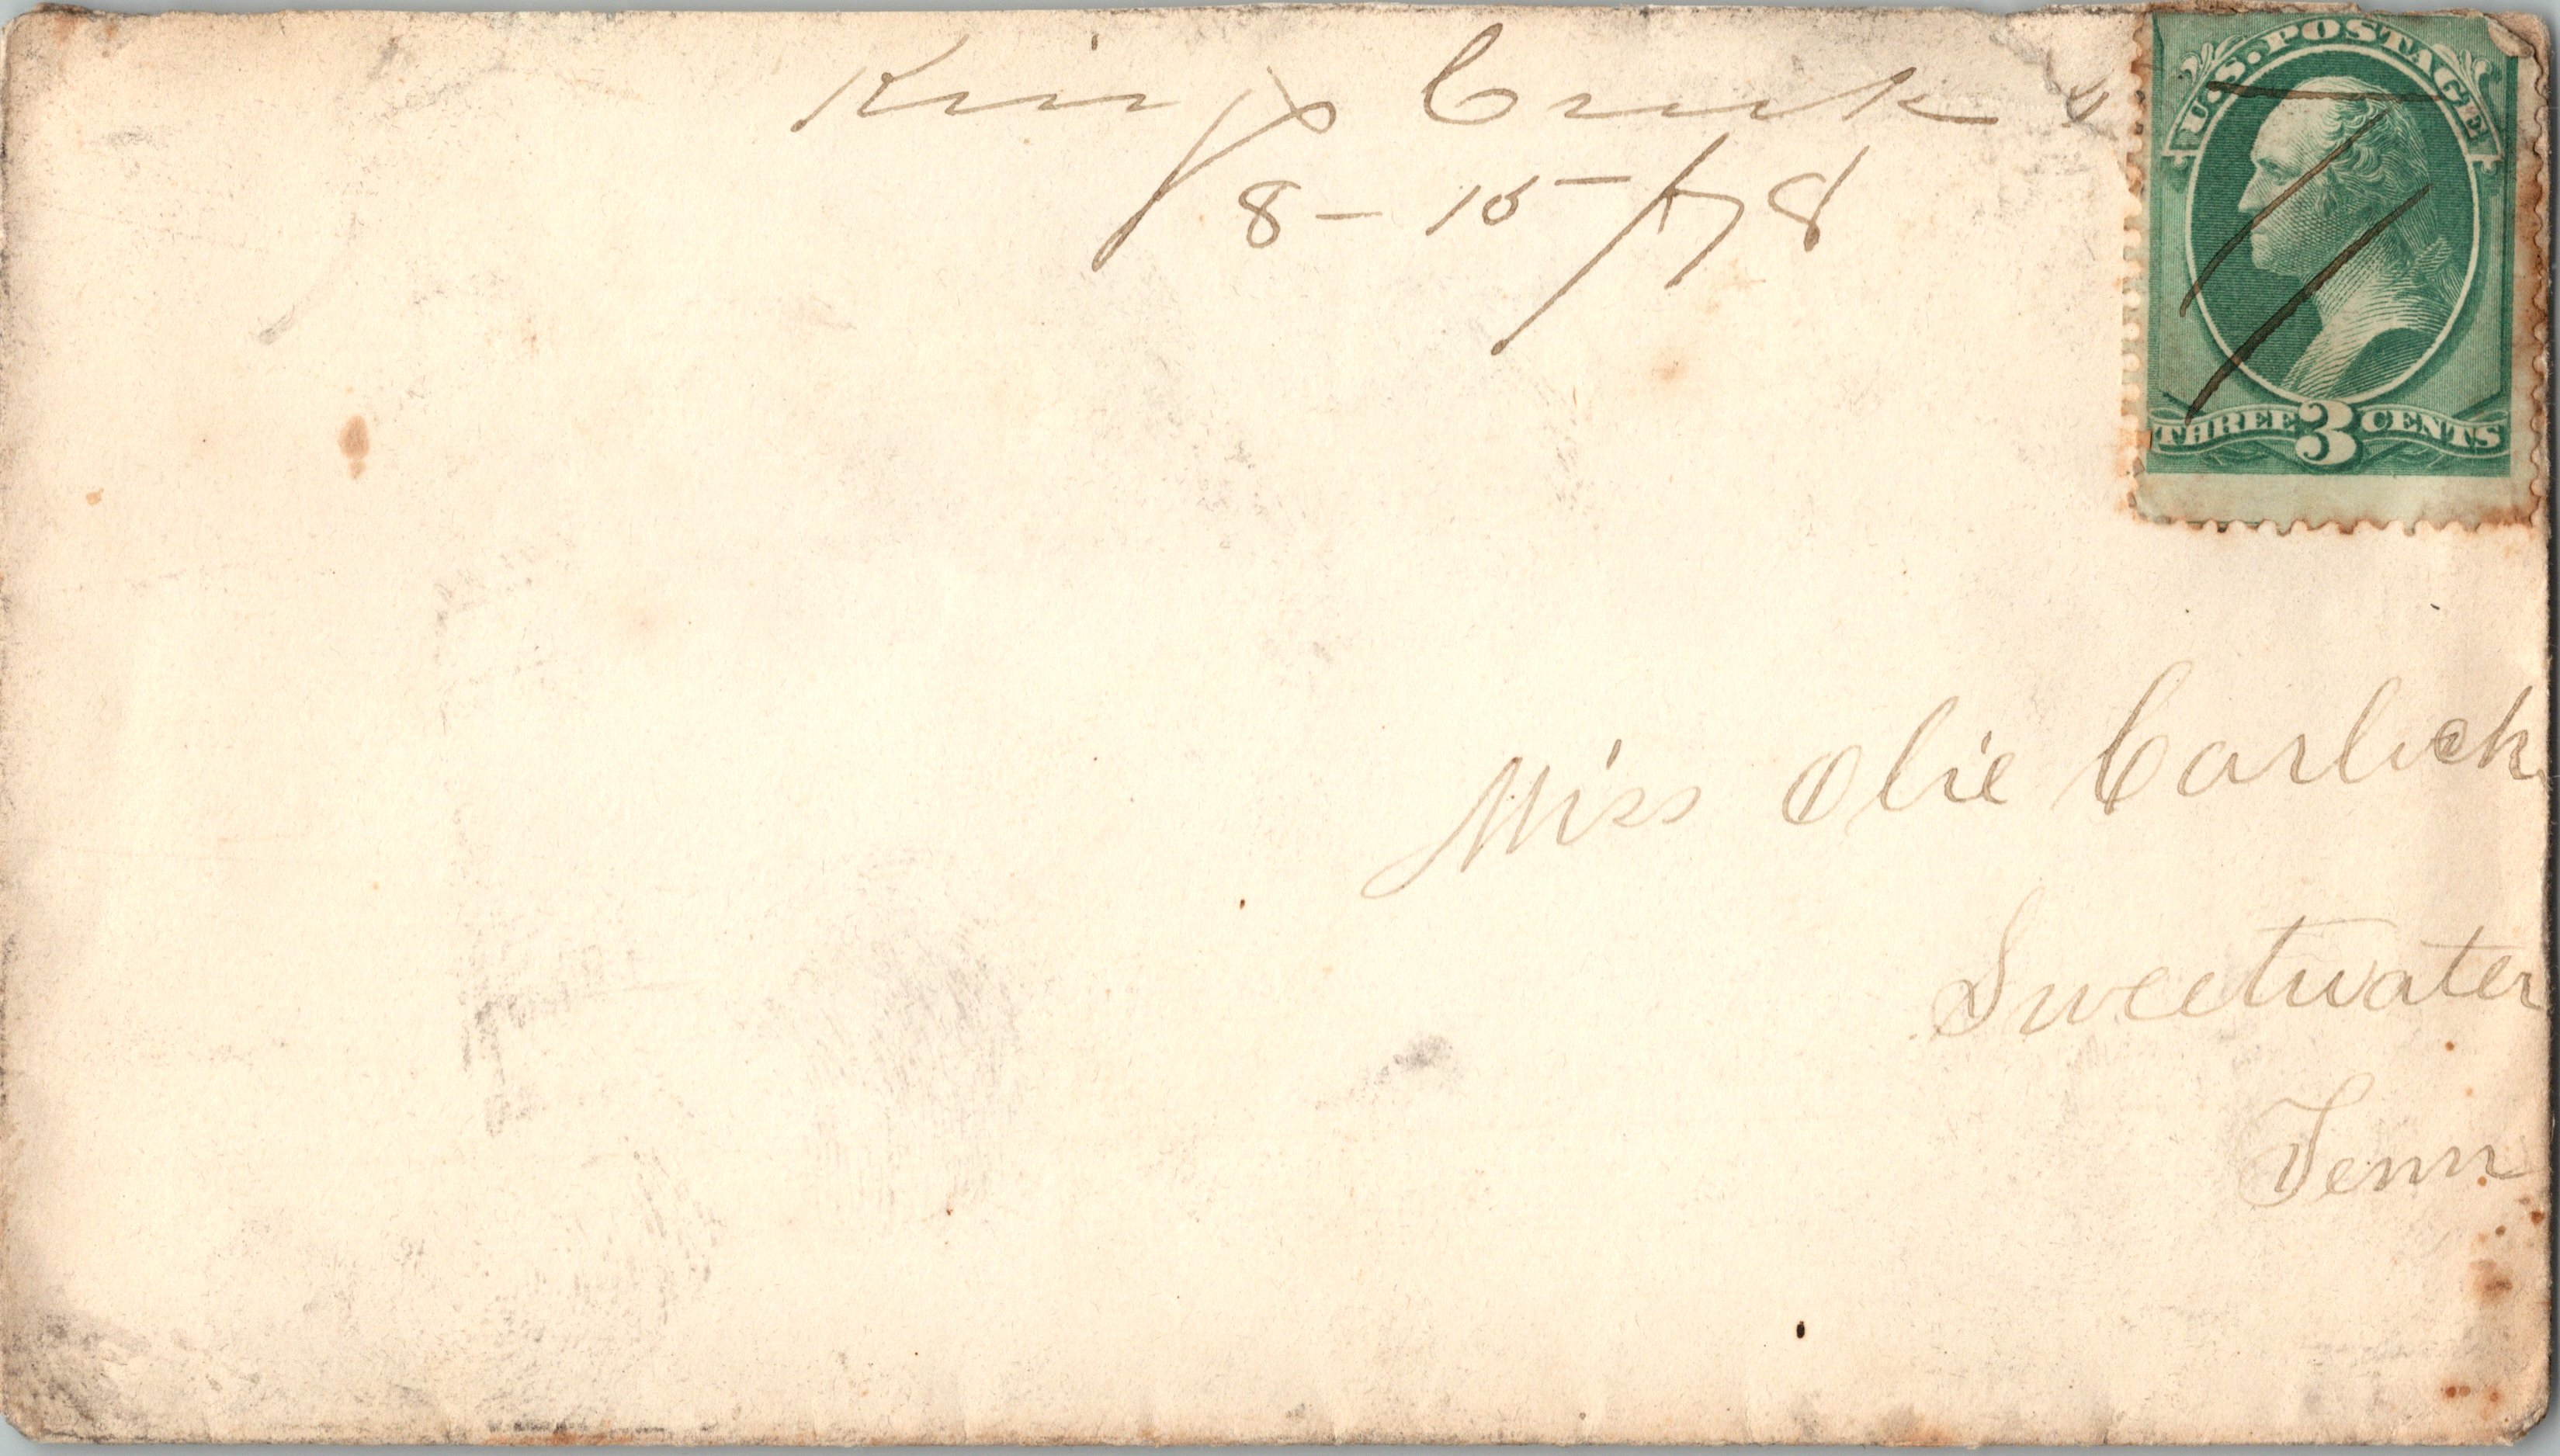 Kings Creek
8-15/78
U.S. POSTAGE
THREE 3 CENTS
Miss Olie Carlock
Sweetwater
Tenn